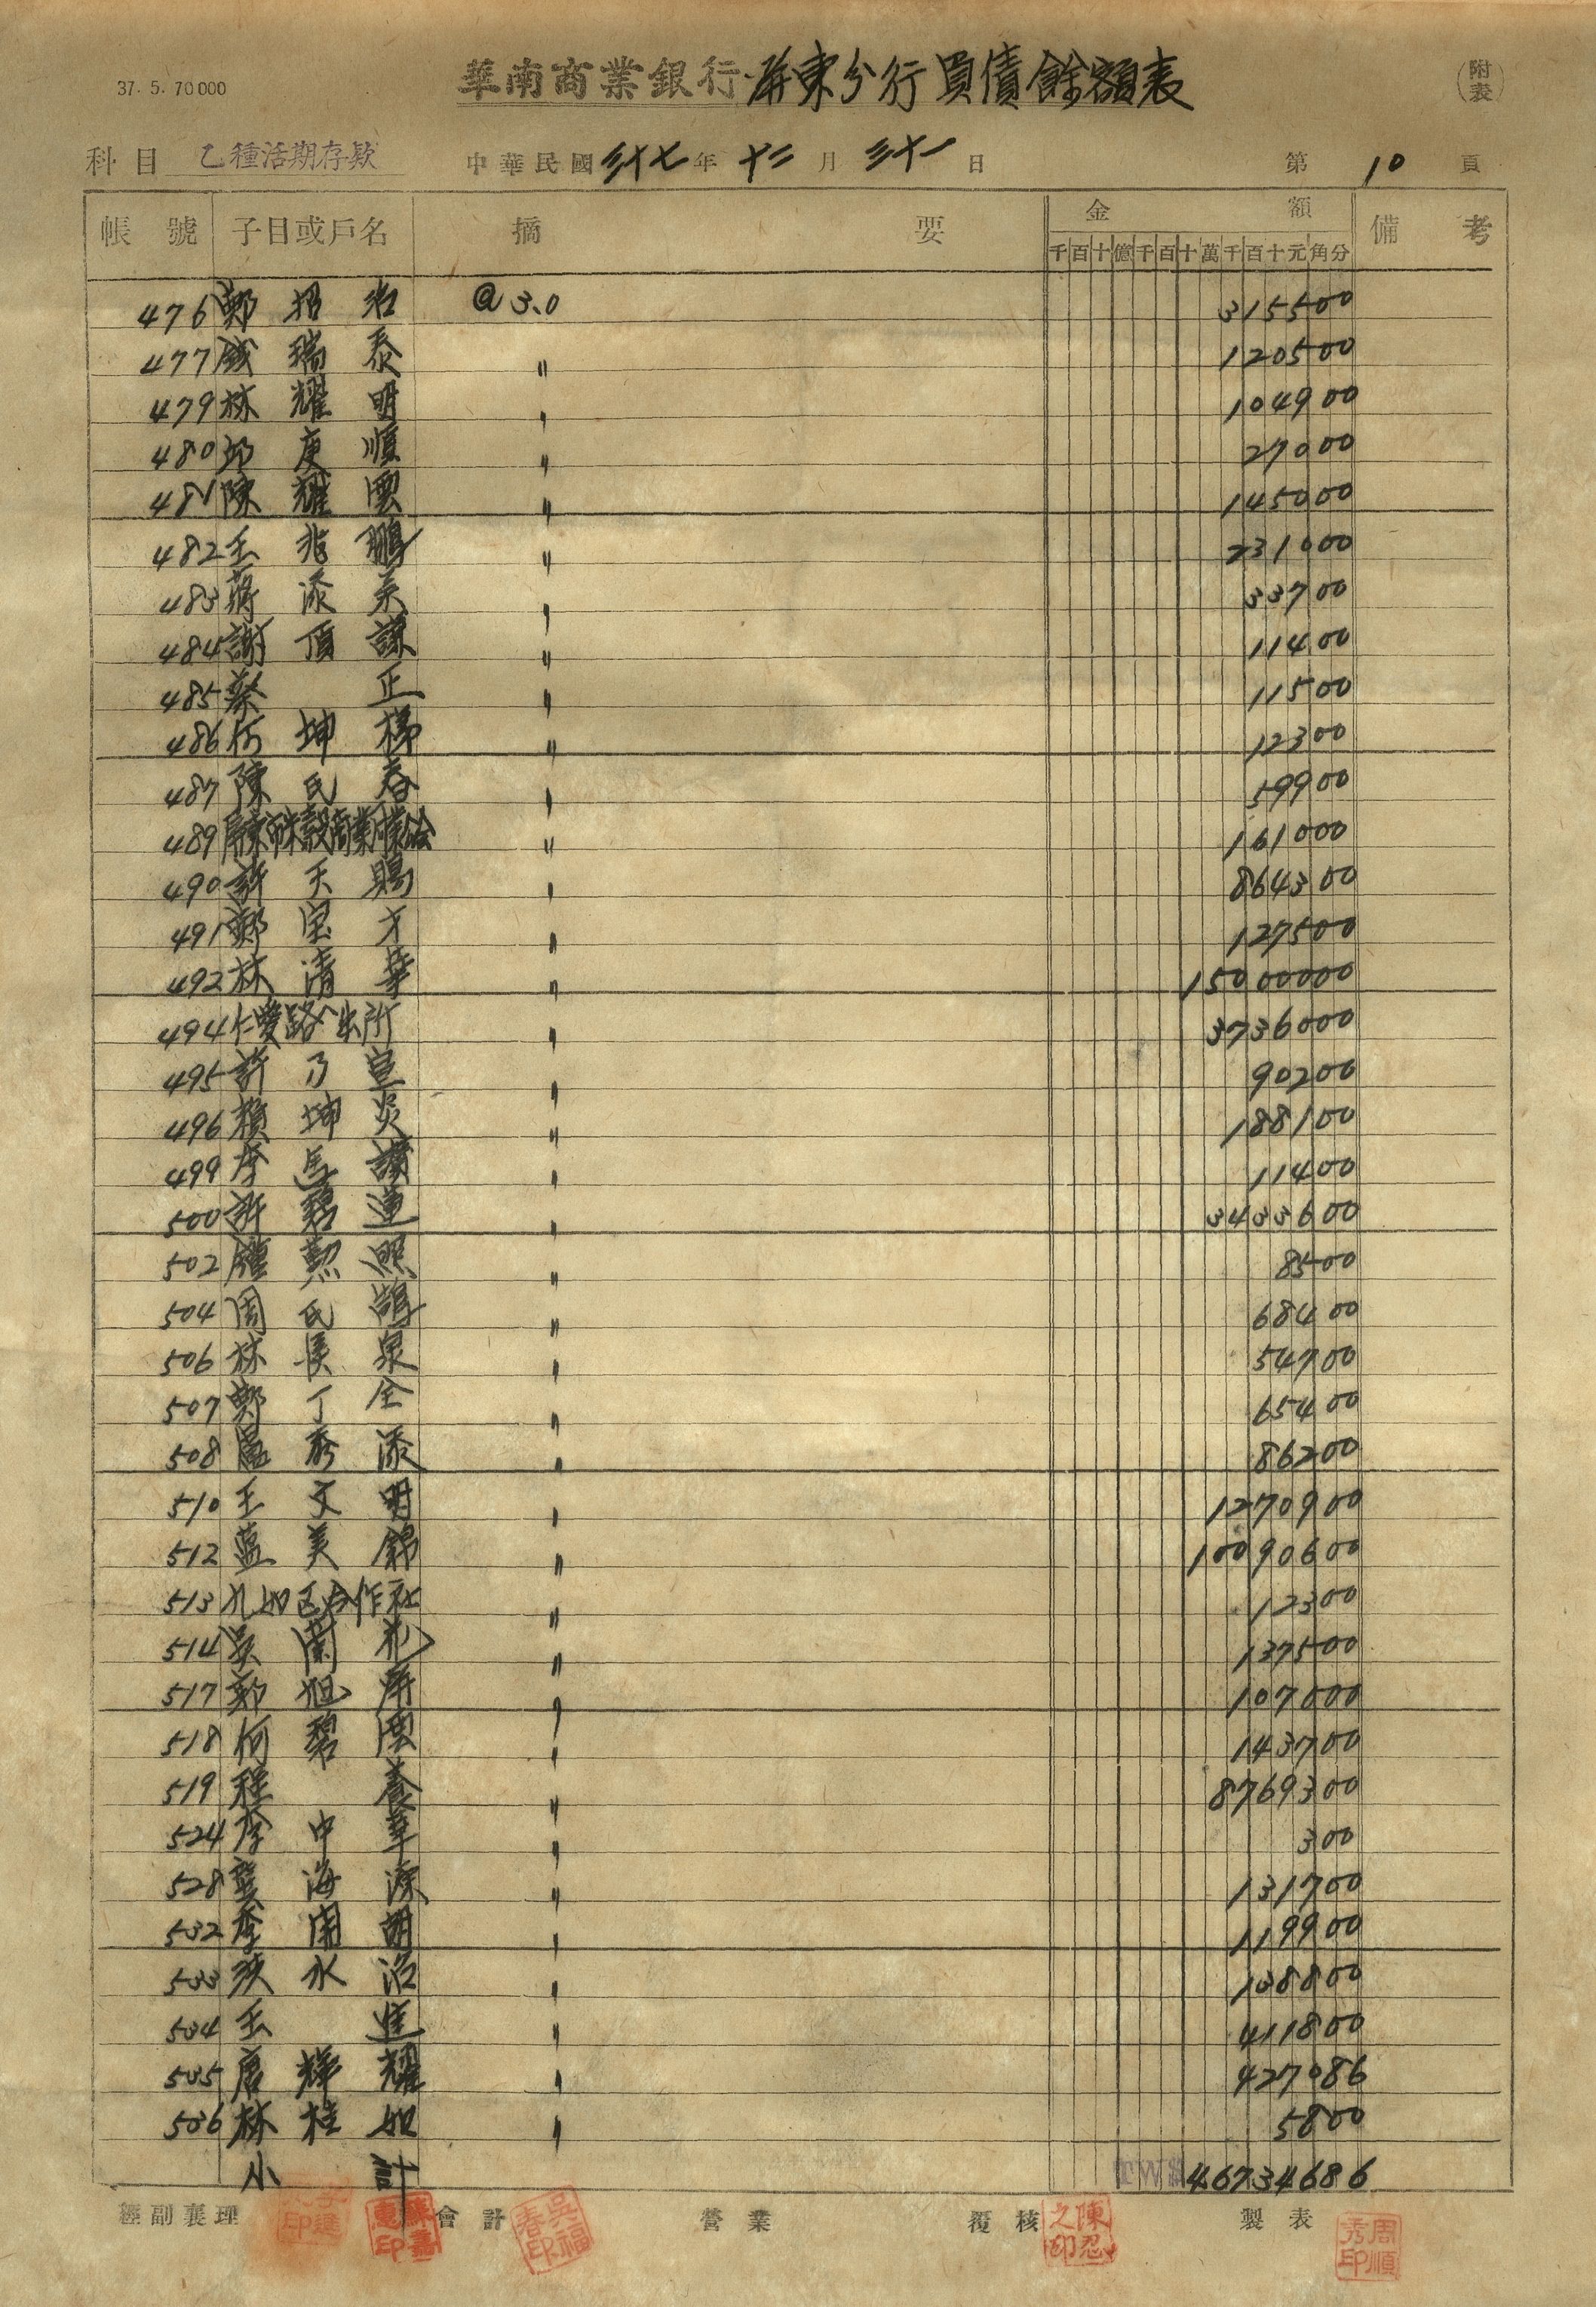 37. 5. 70000
華南商業銀行屏東分行負債餘額表
(附表)
科目 乙種活期存款 中華民國 三十七 年 十二 月 三十一 日 第 10 頁
帳號 子目或戶名 摘要 金額 備考
千百十億千百十萬千百十元角分
476 鄭招治 @3.0 315500
477 錢瑞泰 〃 120500
479 林耀明 〃 104900
480 邱庚順 〃 27000
481 陳耀雲 〃 145000
482 王兆鵬 〃 231000
483 蔣添美 〃 33700
484 謝頂謀 〃 11400
485 蔡正 〃 11500
486 何坤梯 〃 12300
487 陳氏春 〃 59900
489 屏東市米穀商業 〃 161000
490 許天賜 〃 864300
491 鄭宝才 〃 127500
492 林清華 〃 15000000
494 仁愛路 出所 〃 3736000
495 許乃宣 〃 90200
496 賴坤炎 〃 188100
499 李馬讚 〃 11400
500 許碧蓮 〃 3433600
502 鍾勲照 〃 8500
504 周氏 〃 68400
506 林侯泉 〃 54700
507 鄭丁全 〃 65400
508 秀添 〃 86200
510 王文明 〃 1270900
512 藍美錦 〃 10090600
513 九如区合作社 〃 12300
514 吳蘭花 〃 137500
517 郭旭屏 〃 107000
518 何碧雲 〃 143700
519 程養 〃 8769300
524 李中華 〃 300
528 龔海源 〃 131700
532 李開胡 〃 119900
533 洪水沼 〃 138800
534 王進 〃 411800
535 唐輝耀 〃 427086
536 林桂如 〃 5800
小計 TW$ 46734686
經副襄理 會計 營業 覆核 製表
吳福春印
陳忍之印
周順秀印